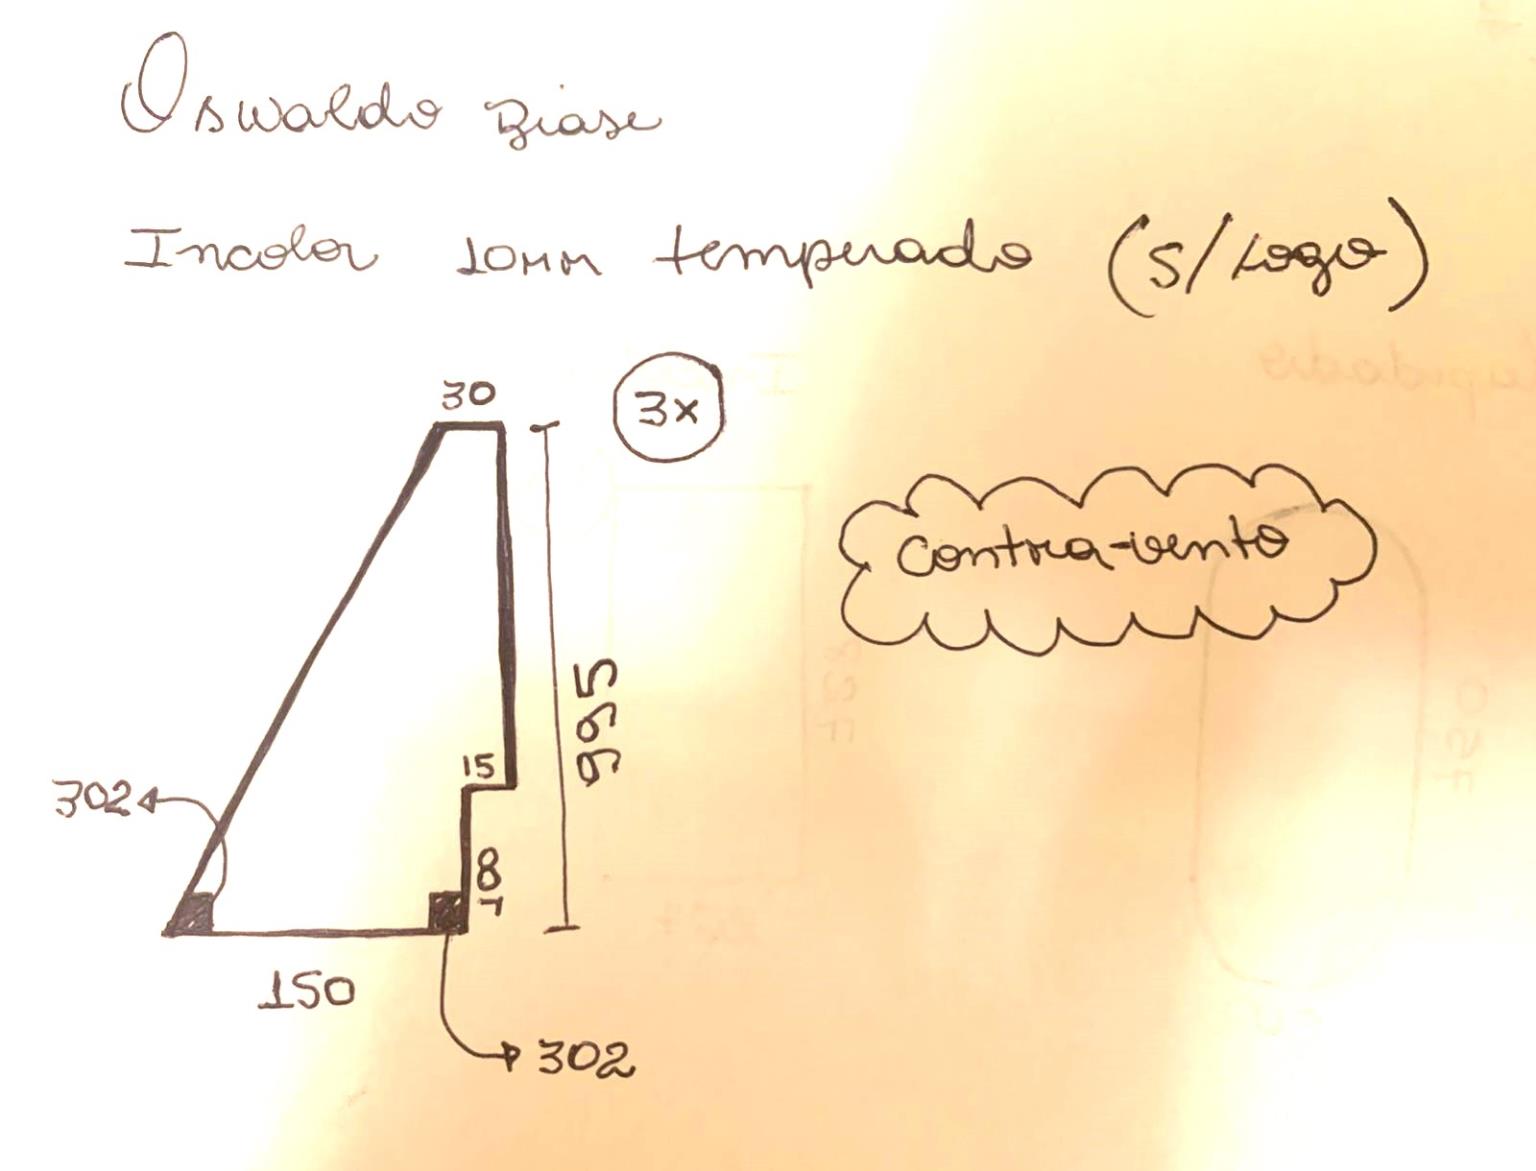 Oswaldo Biase
Incolor 10mm temperado (S/Logo)
30
3x
contra-vento
995
15
302
87
150
302